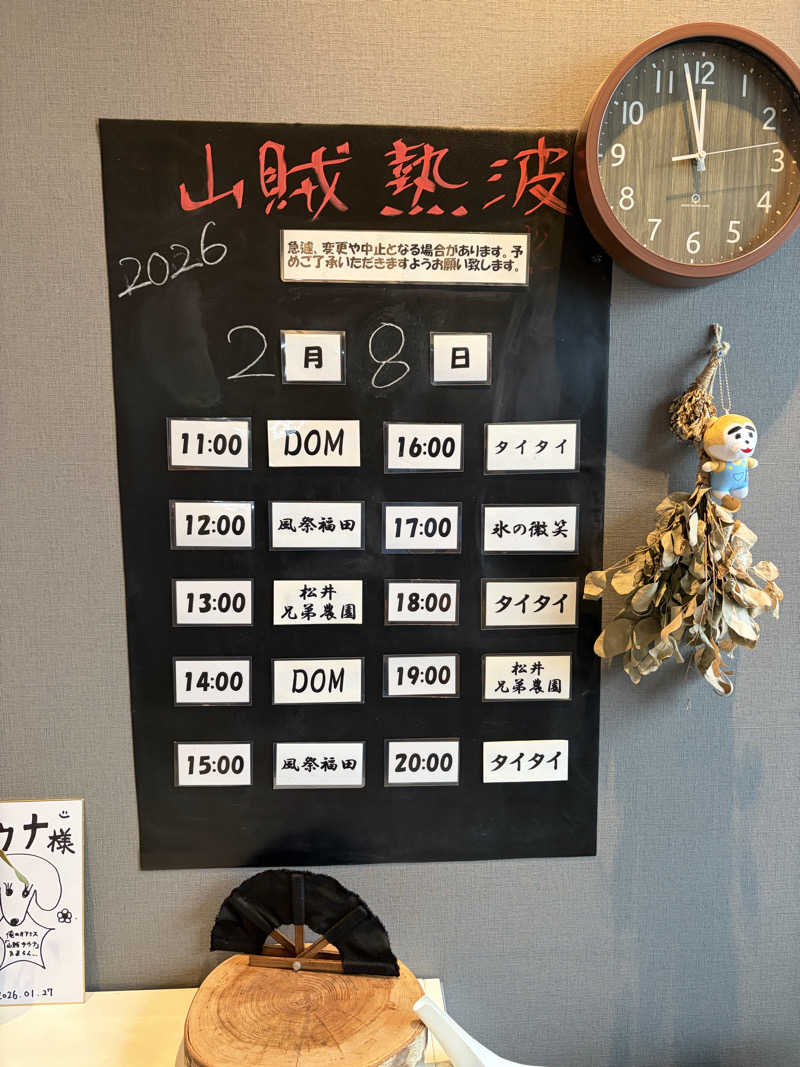 山賊熱波
2026
急遽、変更や中止となる場合があります。予
めご了承いただきますようお願い致します。
2月8日
11:00 DOM 16:00 タイタイ
12:00 風祭福田 17:00 氷の微笑
13:00 松井
兄弟農園 18:00 タイタイ
14:00 DOM 19:00 松井
兄弟農園
15:00 風祭福田 20:00 タイタイ
12
1
2
3
4
5
6
7
8
9
10
11
ウナ様
2026.01.27